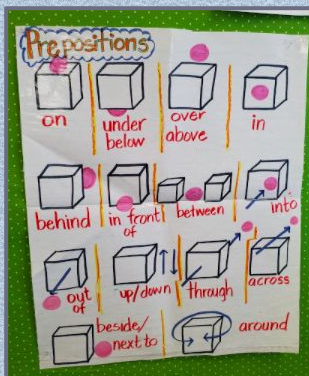 Prepositions
on
under
below
over
above
in
behind
in front
of
between
into
out
of
up/down
through
across
beside/
next to
around